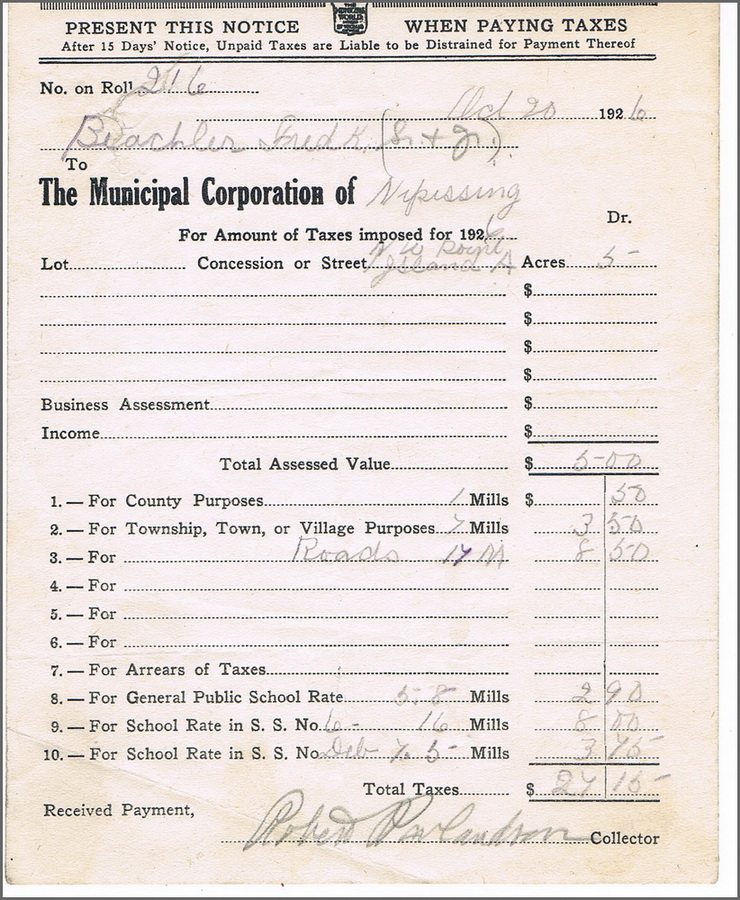 PRESENT THIS NOTICE WHEN PAYING TAXES
After 15 Days' Notice, Unpaid Taxes are Liable to be Distrained for Payment Thereof
No. on Roll 216
Oct 20 1926
Beachler Fredk. (Sr. + Jr.)
To
The Municipal Corporation of Nipissing
Dr.
For Amount of Taxes imposed for 1926
N W Point
Lot Concession or Street Island A Acres 5
$
$
$
$
Business Assessment $
Income $
Total Assessed Value $ 500
1.—For County Purposes 1 Mills $ 50
2.—For Township, Town, or Village Purposes 7 Mills 3 50
3.—For Roads 17 M 8 50
4.—For
5.—For
6.—For
7.—For Arrears of Taxes
8.—For General Public School Rate 5.8 Mills 2 90
9.—For School Rate in S. S. No. 6- 16 Mills 8 00
10.—For School Rate in S. S. No. Deb 7.5 Mills 3 75
Total Taxes $ 27 15
Received Payment,
Robert Collector